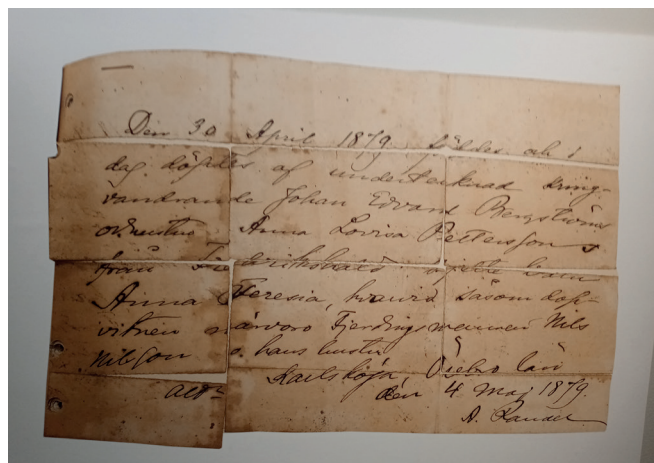 Den 30 April 1879 föddes och i
dag döptes af undertecknad kring-
vandrande Johan Edvard Bergströms
o. hustru Anna Lovisa Pettersson s
från Fredrikshalds äkta barn
Anna Theresia, hvarvid såsom dop-
vitnen närvoro Fjerdingsmannen Nils
Nilsson o. hans hustru
Karlskoga, Örebro län
den 4 Maj 1879.
A.